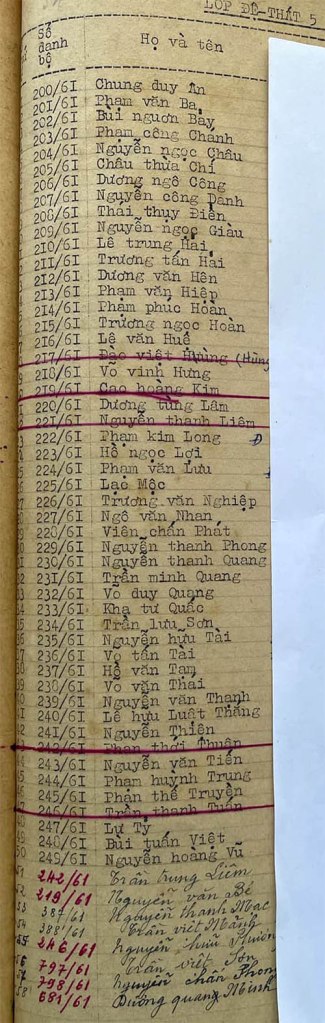 LỚP ĐỆ-THẤT 5
Số danh bộ Họ và tên
200/6I Chung duy Ân
20I/6I Phạm văn Ba
202/6I Bùi ngươn Bảy
203/6I Phạm công Chánh
204/6I Nguyễn ngọc Châu
205/6I Châu thừa Chí
206/6I Dương ngô Công
207/6I Nguyễn công Danh
208/6I Thái thụy Điền
209/6I Nguyễn ngọc Giàu
2I0/6I Lê trung Hải
2II/6I Trương tấn Hải
2I2/6I Dương văn Hên
2I3/6I Phạm văn Hiệp
2I4/6I Phạm phuc Hoàn
2I5/6I Trương ngọc Hoàn
2I6/6I Lê văn Huế
2I7/6I Đào việt Hhùng (Hùng
2I8/6I Vỏ vinh Hưng
2I9/6I Cao hoàng Kim
220/6I Dương tùng Lâm
22I/6I Nguyễn thanh Liêm
222/6I Phạm kim Long Đ
223/6I Hồ ngọc Lợi
224/6I Phạm văn Lưu
225/6I Lạc Mộc
226/6I Trương văn Nghiệp
227/6I Ngô văn Nhan
228/6I Viên chấn Phát
229/6I Nguyễn thanh Phong
230/6I Nguyễn thanh Quang
23I/6I Trần minh Quang
232/6I Võ duy Quang
233/6I Kha tư Quắc
234/6I Trần lưu Sơn
235/6I Nguyễn hựu Tài
236/6I Vọ tấn Tài
237/6I Hồ văn Tam
238/6I Vo văn Thái
239/6I Nguyễn văn Thạnh
240/6I Lê hựu Luật Thắng
24I/6I Nguyễn Thiện
242/6I Phan thới Thuận
243/6I Nguyễn văn Tiến
244/6I Phạm huỳnh Trung
245/6I Phận thế Truyền
246/6I Trần thanh Tuấn
247/6I Lự Tỷ
248/6I Bùi tuấn Việt
249/6I Nguyễn hoàng Vũ
242/61 Trần trung Liêm
219/61 Nguyễn văn Bé
387/61 Nguyễn thanh Mạc
388/61 Trần viết Mãng
246/61 Nguyễn hữu Phước
797/61 Trần viết Tôn
798/61 Nguyễn chấn Phong
681/61 Dương quang Minh